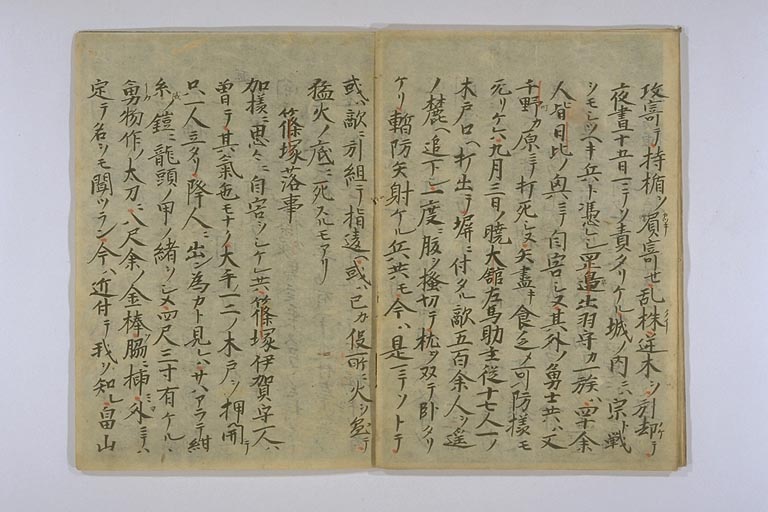 攻寄テ持楯ヲ㒵寄セ乱株逆木ヲ引却テ
夜晝十五日ニテソ責タリケル城ノ内ニハ宗ト戦
シモシツヘキ兵ト憑シ罡邉出羽守カ一族四十余
人皆日比ノ與ニテ自害シヌ其外ノ勇士共ハ又
千野カ原ニテ打死シヌ矢盡キ食乏メ可防様モ
死リケレハ九月三日ノ曉大舘左馬助主従十七人一ノ
木戸口ヘ打出テ塀ニ付タル敵五百余人ヲ遥
ノ麓ヘ追下シ一度ニ腹ヲ掻切テ枕ヲ双テ卧タリ
ケリ暫防矢射ケル兵共モ今ハ是ニテソトテ
或ハ敵ニ引組テ指違ヘ或ハ己カ役所ニ火ヲ懸テ
猛火ノ底ニ死スルモアリ
篠塚落事
加様ニ思々ニ自害シケレ共篠塚伊賀守一人ハ
曽テ其氣色モナク大手一二ノ木戸ヲ押開テ
只一人立タリ降人ニ出ン為カト見レハサハアラテ紺
糸ノ鎧ニ龍頭ノ甲ノ緒ヲシメ四尺三寸有ケル
勇物作ノ太刀ニ八尺余ノ金棒脇ニ挿外ニテハ
定テ名ヲモ聞ツラン今ハ近付テ我ヲ知レ畠山